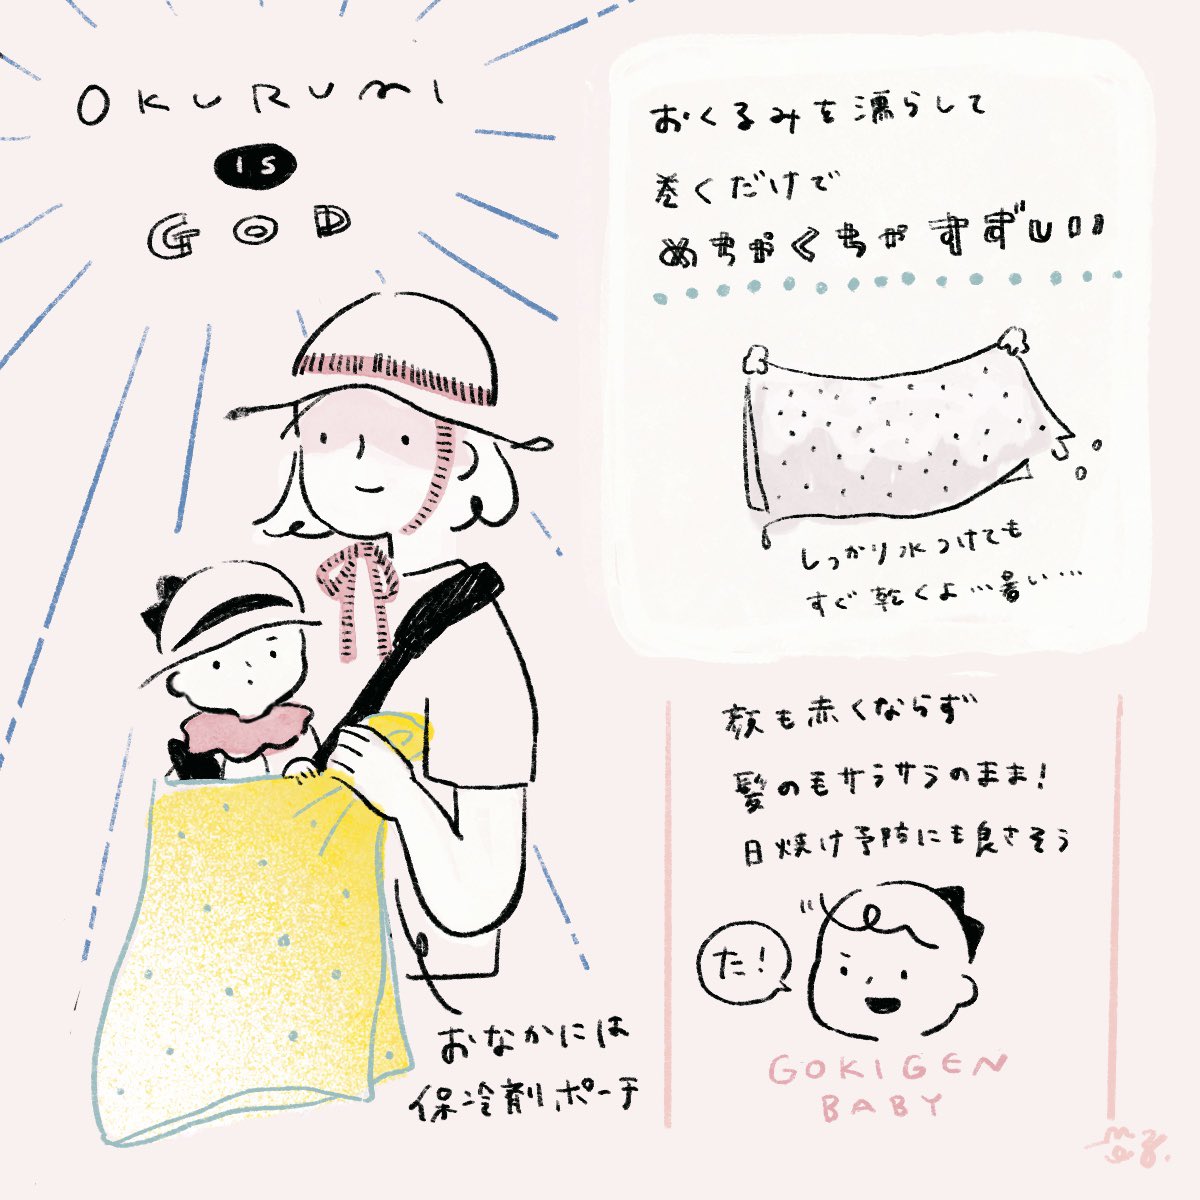 OKURUMI
IS
GOD
おくるみを濡らして
巻くだけで
めちゃくちゃすずしい
しっかり水つけても
すぐ乾くよ…暑い…
顔も赤くならず
髪の毛サラサラのまま!
日焼け予防にも良さそう
た!
GOKIGEN
BABY
おなかには
保冷剤ポーチ